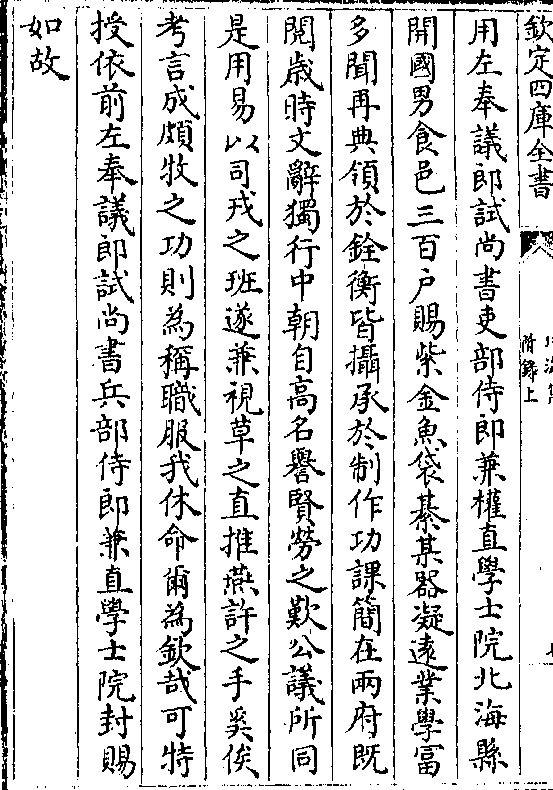 欽定四庫全書
附錄上
用左奉議郎試尚書吏部侍郎兼權直學士院北海縣
開國男食邑三百户賜紫金魚袋綦某器凝逺業學富
多聞再典領於銓衡皆攝承於制作功課簡在兩府既
閱歳時文辭獨行中朝自高名譽賢勞之歎公議所同
是用易以司戎之班遂兼視草之直推燕許之手奚俟
考言成頗牧之功則為稱職服我休命爾為欽哉可特
授依前左奉議郎試尚書兵部侍郎兼直學士院封賜
如故